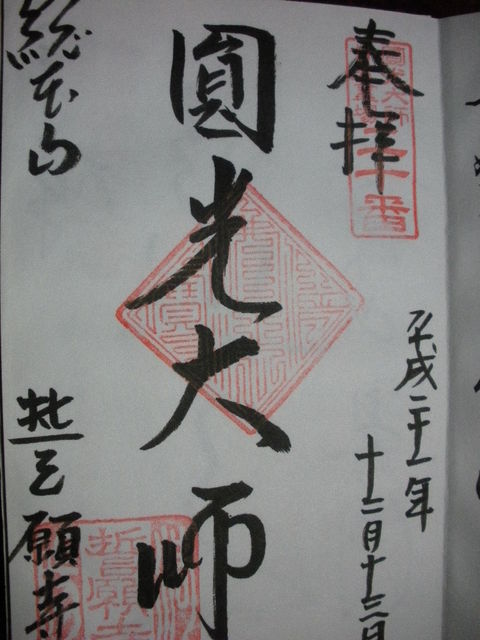 奉拝
二十番
平成二十一年
十二月十三日
圓光大師
総本山 誓願寺
誓願寺